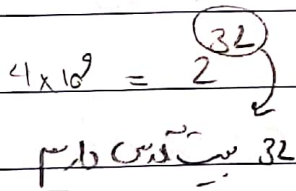 4×10⁹ = 2³²
32 بیت آدرس داریم